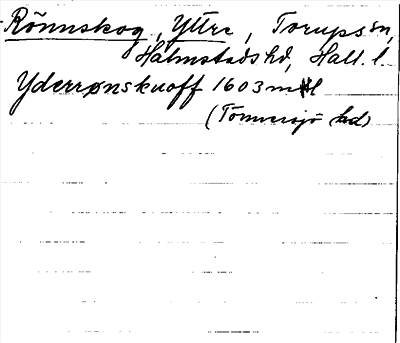 Rönnskog, Yttre, Torups sn,
Halmstads hd, Hall. l.
Yderrønskuoff 1603 mtl
(Tönnersjö hd)